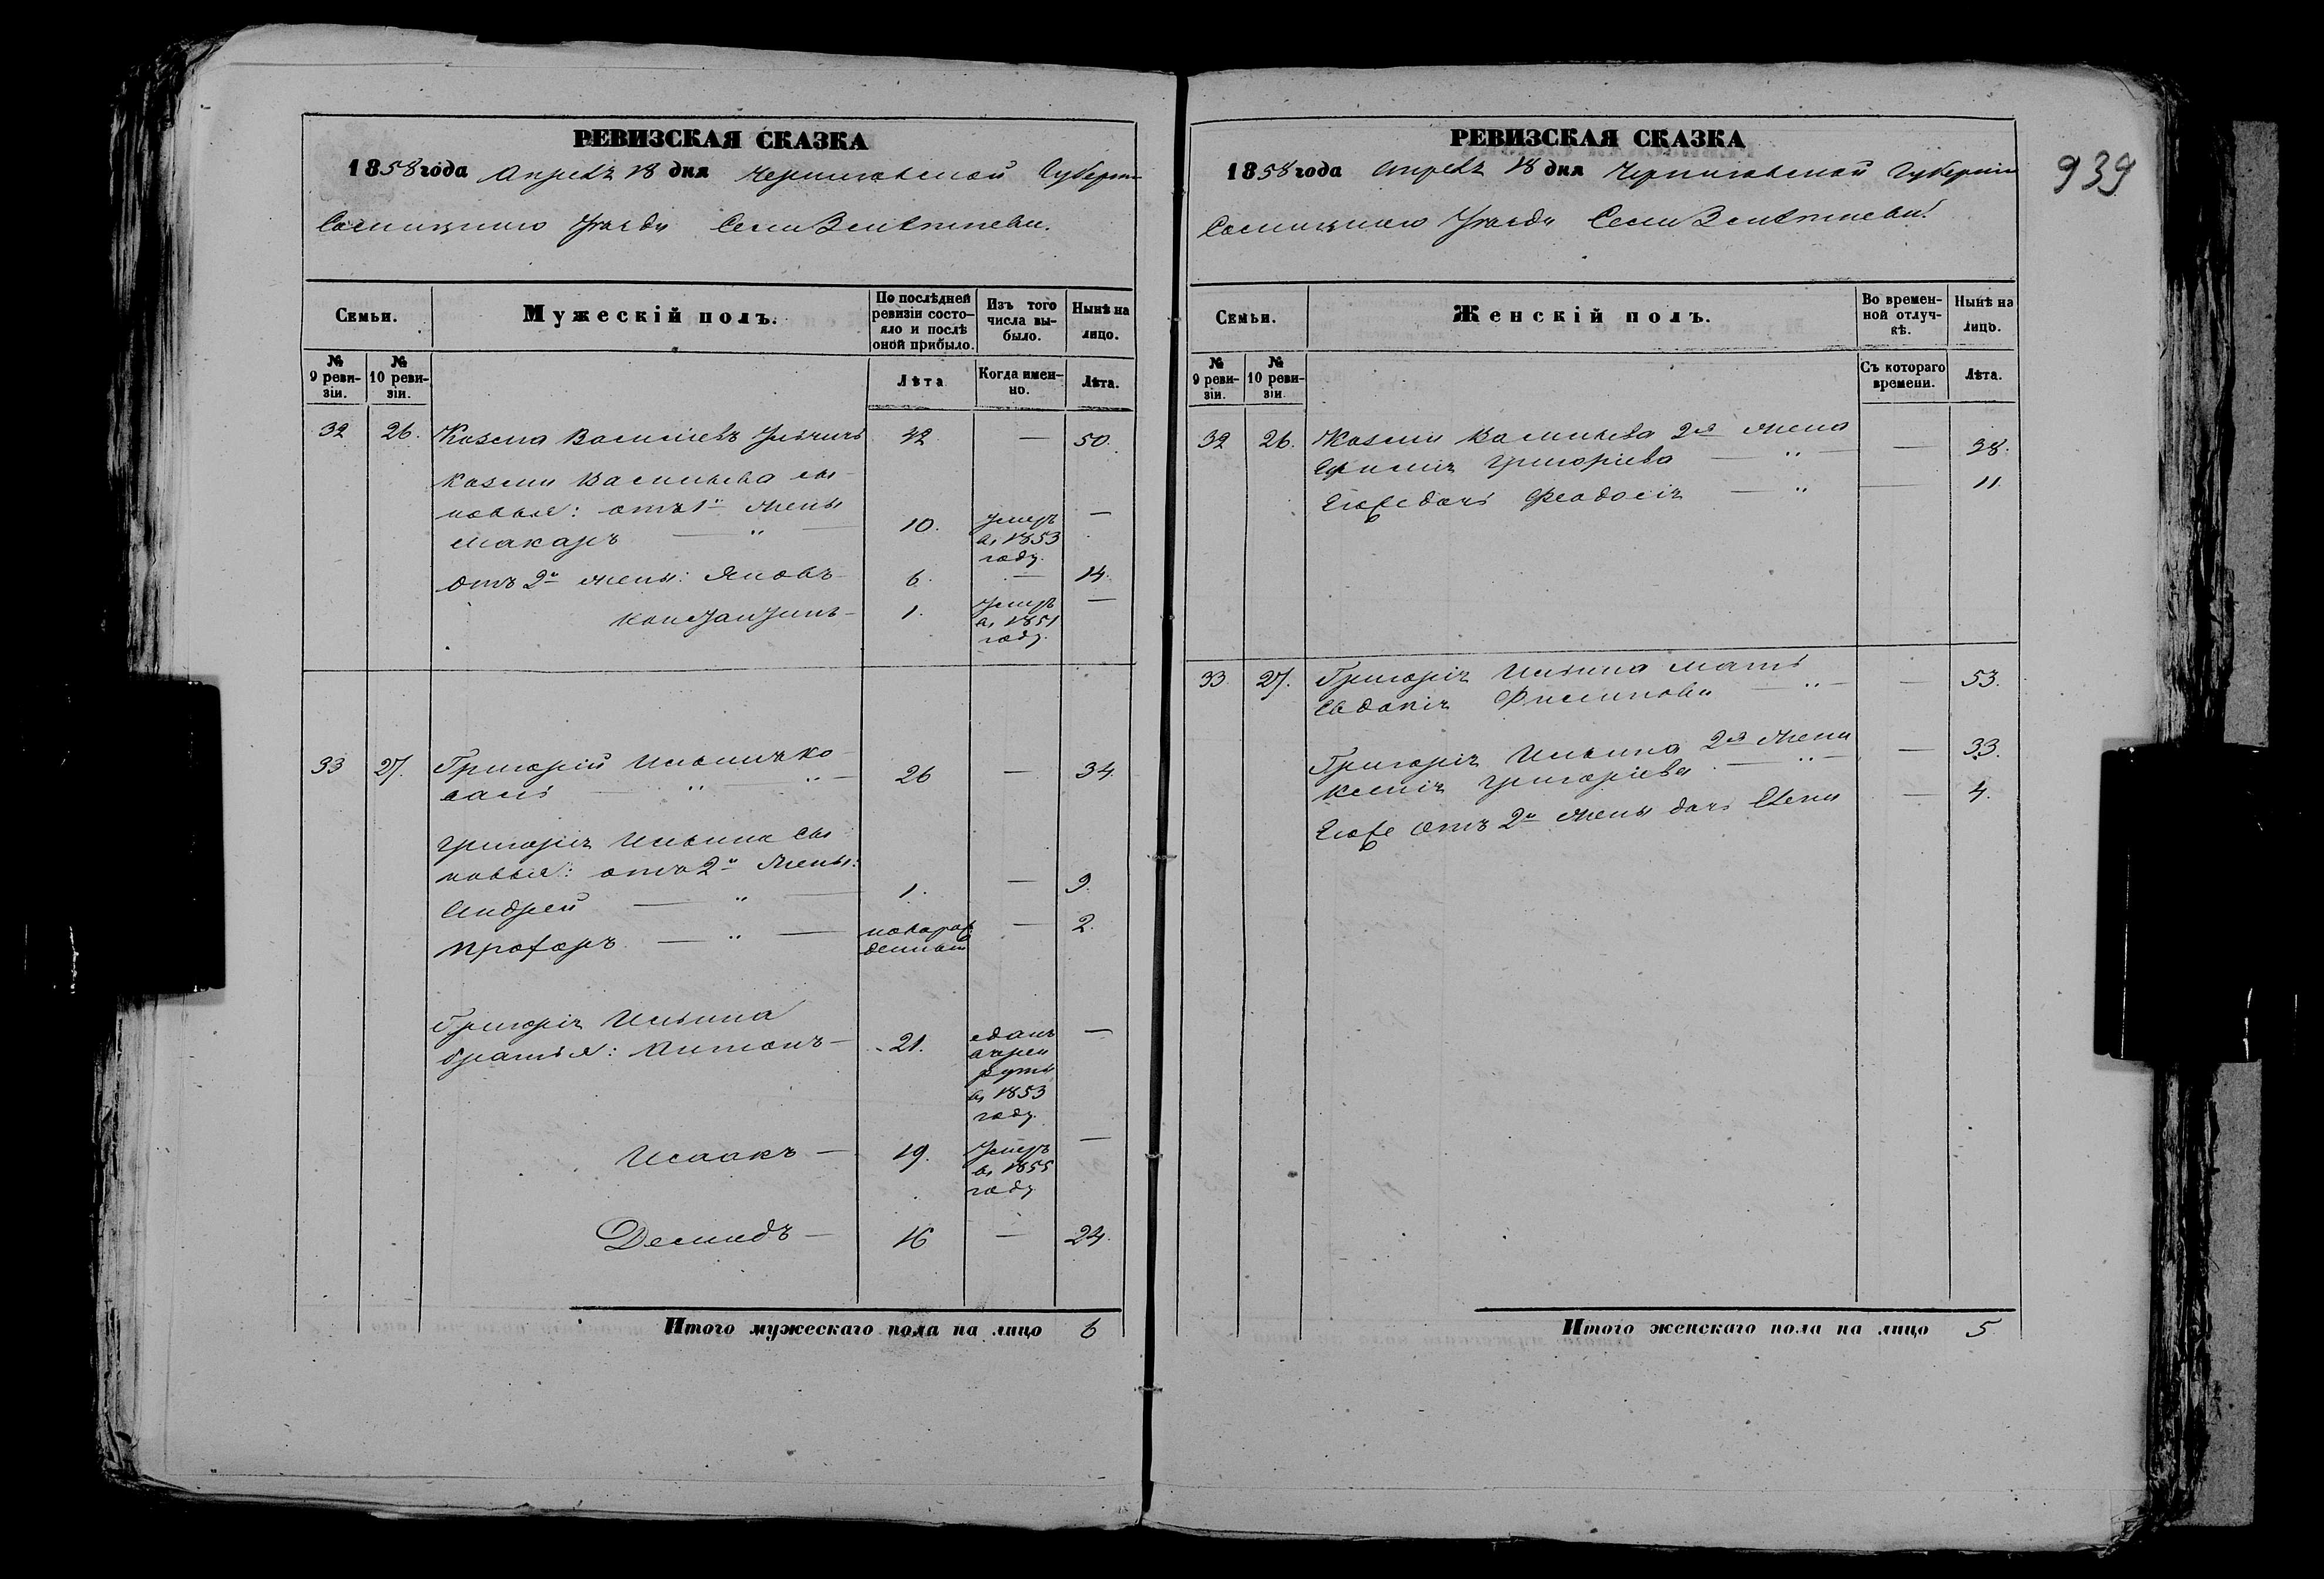 РЕВИЗСКАЯ СКАЗКА
1858 года Апреля 18 дня Черниговской Губерніи
Сосницкаго Уѣзда Села
Семьи.
Мужескій полъ.
По послѣдней ревизіи состояло и послѣ оной прибыло.
Изъ того числа выбыло.
Нынѣ на лицо.
№ 9 ревизіи.
№ 10 ревизіи.
Лѣта
Когда именно.
Лѣта.
32 26. Козма Васильевъ 42 — 50.
Козмы Васильева сы
новья: отъ 1й жены
Макаръ — " — 10. умеръ въ 1853 году. —
отъ 2й жены: Яковъ 6. — 14.
Константинъ — 1. умеръ въ 1851 году. —
33 27. Григорій Ильинъ Ко
валь — " — " — 26 — 34.
Григорія Ильина сы
новья: отъ 2й жены:
Андрей — " — 1. — 9.
Прохоръ — " — новорожденный — 2.
Григорія Ильина
братья: Антонъ — 21. сданъ въ рекруты въ 1853 году. —
Исаакъ — 19. умеръ въ 1855 году —
Демидъ — 16 — 24.
Итого мужескаго пола на лицо 6
РЕВИЗСКАЯ СКАЗКА
1858 года Апреля 18 дня Черниговской Губерніи
Сосницкаго Уѣзда Села
939
Семьи.
Женскій полъ.
Во временной отлучкѣ.
Нынѣ на лицо.
№ 9 ревизіи.
№ 10 ревизіи.
Съ котораго времени.
Лѣта.
32 26. Козмы Васильева 2я жена
Григоріева — " — — 38.
Его же дочь Феодосія — " — 11.
33. 27. Григорія Ильина мать
Евдокія Филипова — " — — 53.
Григорія Ильина 2я жена
Ксенія Григоріева — " — — 33.
Его же отъ 2й жены дочь Елена — 4.
Итого женскаго пола на лицо 5